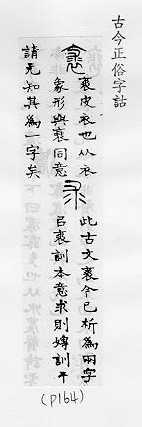 古今正俗字詁
裘 裘皮衣也从衣
象形與衰同意
求 此古文裘今已析為兩字
㠯裘訓本意求則嫥訓干
請无知其為一字矣
(P164)